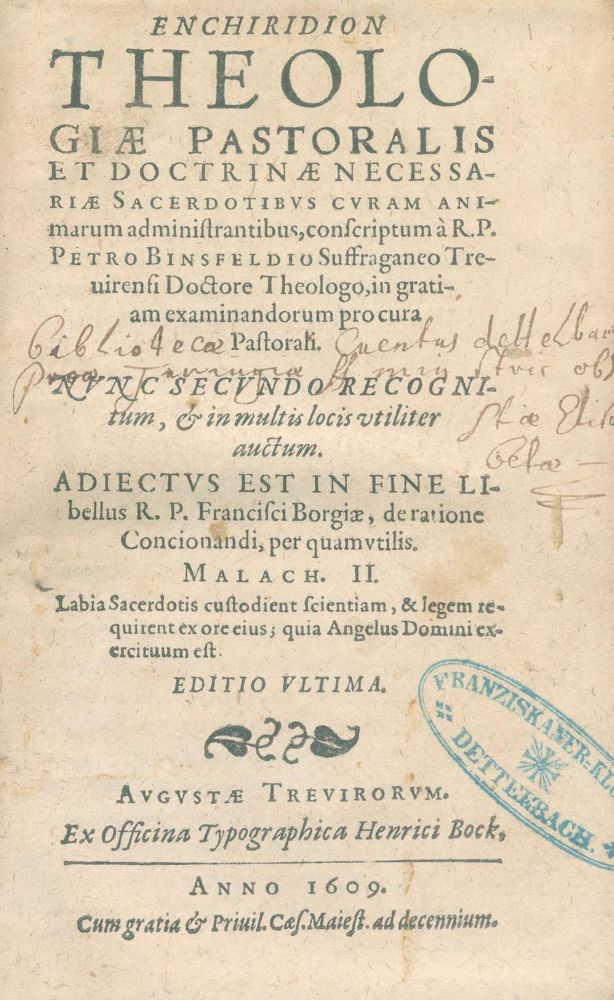 ENCHIRIDION
THEOLO-
GIÆ PASTORALIS
ET DOCTRINÆ NECESSA-
RIÆ SACERDOTIBVS CVRAM ANI-
marum adminiſtrantibus, conſcriptum à R.P.
PETRO BINSFELDIO Suffraganeo Tre-
uirenſi Doctore Theologo, in grati-
am examinandorum pro cura
Paſtorali.
bibliotecæ
NVNC SECVNDO RECOGNI-
tum, & in multis locis vtiliter
auctum.
ADIECTVS EST IN FINE LI-
bellus R. P. Franciſci Borgiæ, de ratione
Concionandi, per quam vtilis.
MALACH. II.
Labia Sacerdotis cuſtodient ſcientiam, & legem re-
quirent ex ore eius; quia Angelus Domini ex-
ercituum eſt.
EDITIO VLTIMA.
FRANZISKANER-KL
DETTELBACH.
AVGVSTÆ TREVIRORVM.
Ex Officina Typographica Henrici Bock,
ANNO 1609.
Cum gratia & Priuil. Cæſ. Maieſt. ad decennium.